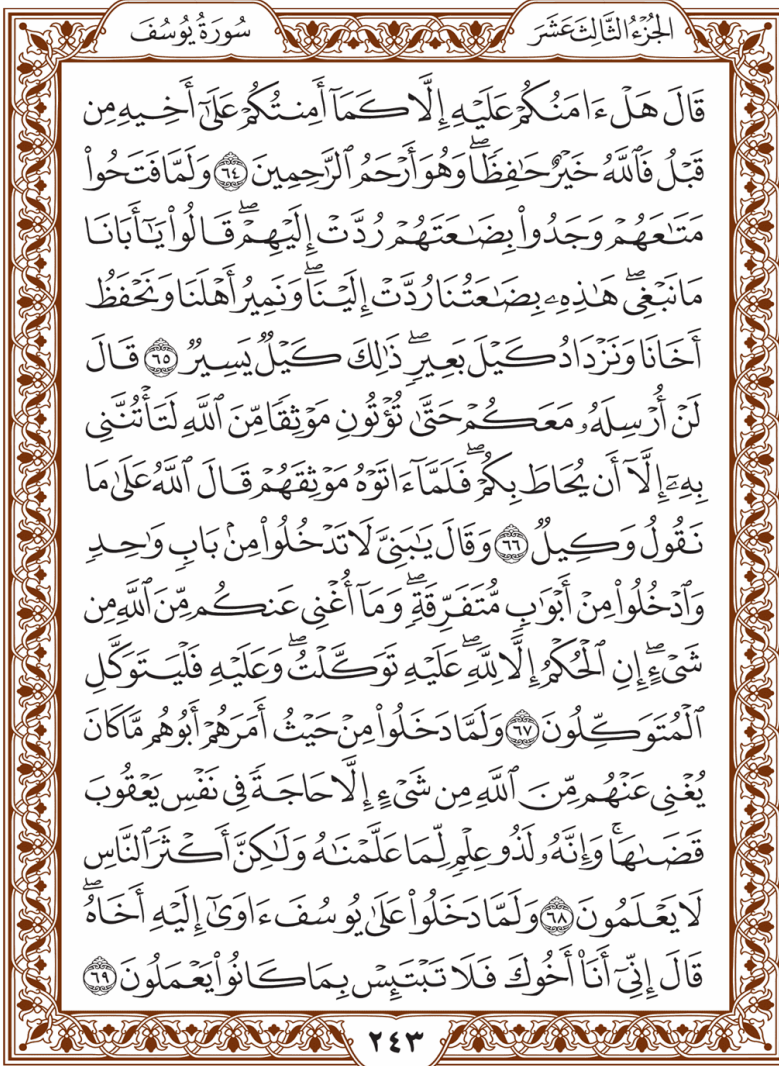 الجُزْءُ الثَّالِثَ عَشَرَ
سُورَةُ يُوسُفَ
قَالَ هَلْ ءَامَنُكُمْ عَلَيْهِ إِلَّا كَمَآ أَمِنتُكُمْ عَلَىٰٓ أَخِيهِ مِن
قَبْلُ فَٱللَّهُ خَيْرٌ حَٰفِظًاۖ وَهُوَ أَرْحَمُ ٱلرَّٰحِمِينَ ٦٤ وَلَمَّا فَتَحُواْ
مَتَٰعَهُمْ وَجَدُواْ بِضَٰعَتَهُمْ رُدَّتْ إِلَيْهِمْۖ قَالُواْ يَٰٓأَبَانَا
مَا نَبْغِيۖ هَٰذِهِۦ بِضَٰعَتُنَا رُدَّتْ إِلَيْنَاۖ وَنَمِيرُ أَهْلَنَا وَنَحْفَظُ
أَخَانَا وَنَزْدَادُ كَيْلَ بَعِيرٍۖ ذَٰلِكَ كَيْلٌ يَسِيرٌ ٦٥ قَالَ
لَنْ أُرْسِلَهُۥ مَعَكُمْ حَتَّىٰ تُؤْتُونِ مَوْثِقًا مِّنَ ٱللَّهِ لَتَأْتُنَّنِي
بِهِۦٓ إِلَّآ أَن يُحَاطَ بِكُمْۖ فَلَمَّآ ءَاتَوْهُ مَوْثِقَهُمْ قَالَ ٱللَّهُ عَلَىٰ مَا
نَقُولُ وَكِيلٌ ٦٦ وَقَالَ يَٰبَنِيَّ لَا تَدْخُلُواْ مِنۢ بَابٍ وَٰحِدٍ
وَٱدْخُلُواْ مِنْ أَبْوَٰبٍ مُّتَفَرِّقَةٍۖ وَمَآ أُغْنِي عَنكُم مِّنَ ٱللَّهِ مِن
شَيْءٍۖ إِنِ ٱلْحُكْمُ إِلَّا لِلَّهِۖ عَلَيْهِ تَوَكَّلْتُۖ وَعَلَيْهِ فَلْيَتَوَكَّلِ
ٱلْمُتَوَكِّلُونَ ٦٧ وَلَمَّا دَخَلُواْ مِنْ حَيْثُ أَمَرَهُمْ أَبُوهُم مَّا كَانَ
يُغْنِي عَنْهُم مِّنَ ٱللَّهِ مِن شَيْءٍ إِلَّا حَاجَةً فِي نَفْسِ يَعْقُوبَ
قَضَىٰهَاۚ وَإِنَّهُۥ لَذُو عِلْمٍ لِّمَا عَلَّمْنَٰهُ وَلَٰكِنَّ أَكْثَرَ ٱلنَّاسِ
لَا يَعْلَمُونَ ٦٨ وَلَمَّا دَخَلُواْ عَلَىٰ يُوسُفَ ءَاوَىٰٓ إِلَيْهِ أَخَاهُۖ
قَالَ إِنِّيٓ أَنَا۠ أَخُوكَ فَلَا تَبْتَئِسْ بِمَا كَانُواْ يَعْمَلُونَ ٦٩
٢٤٣